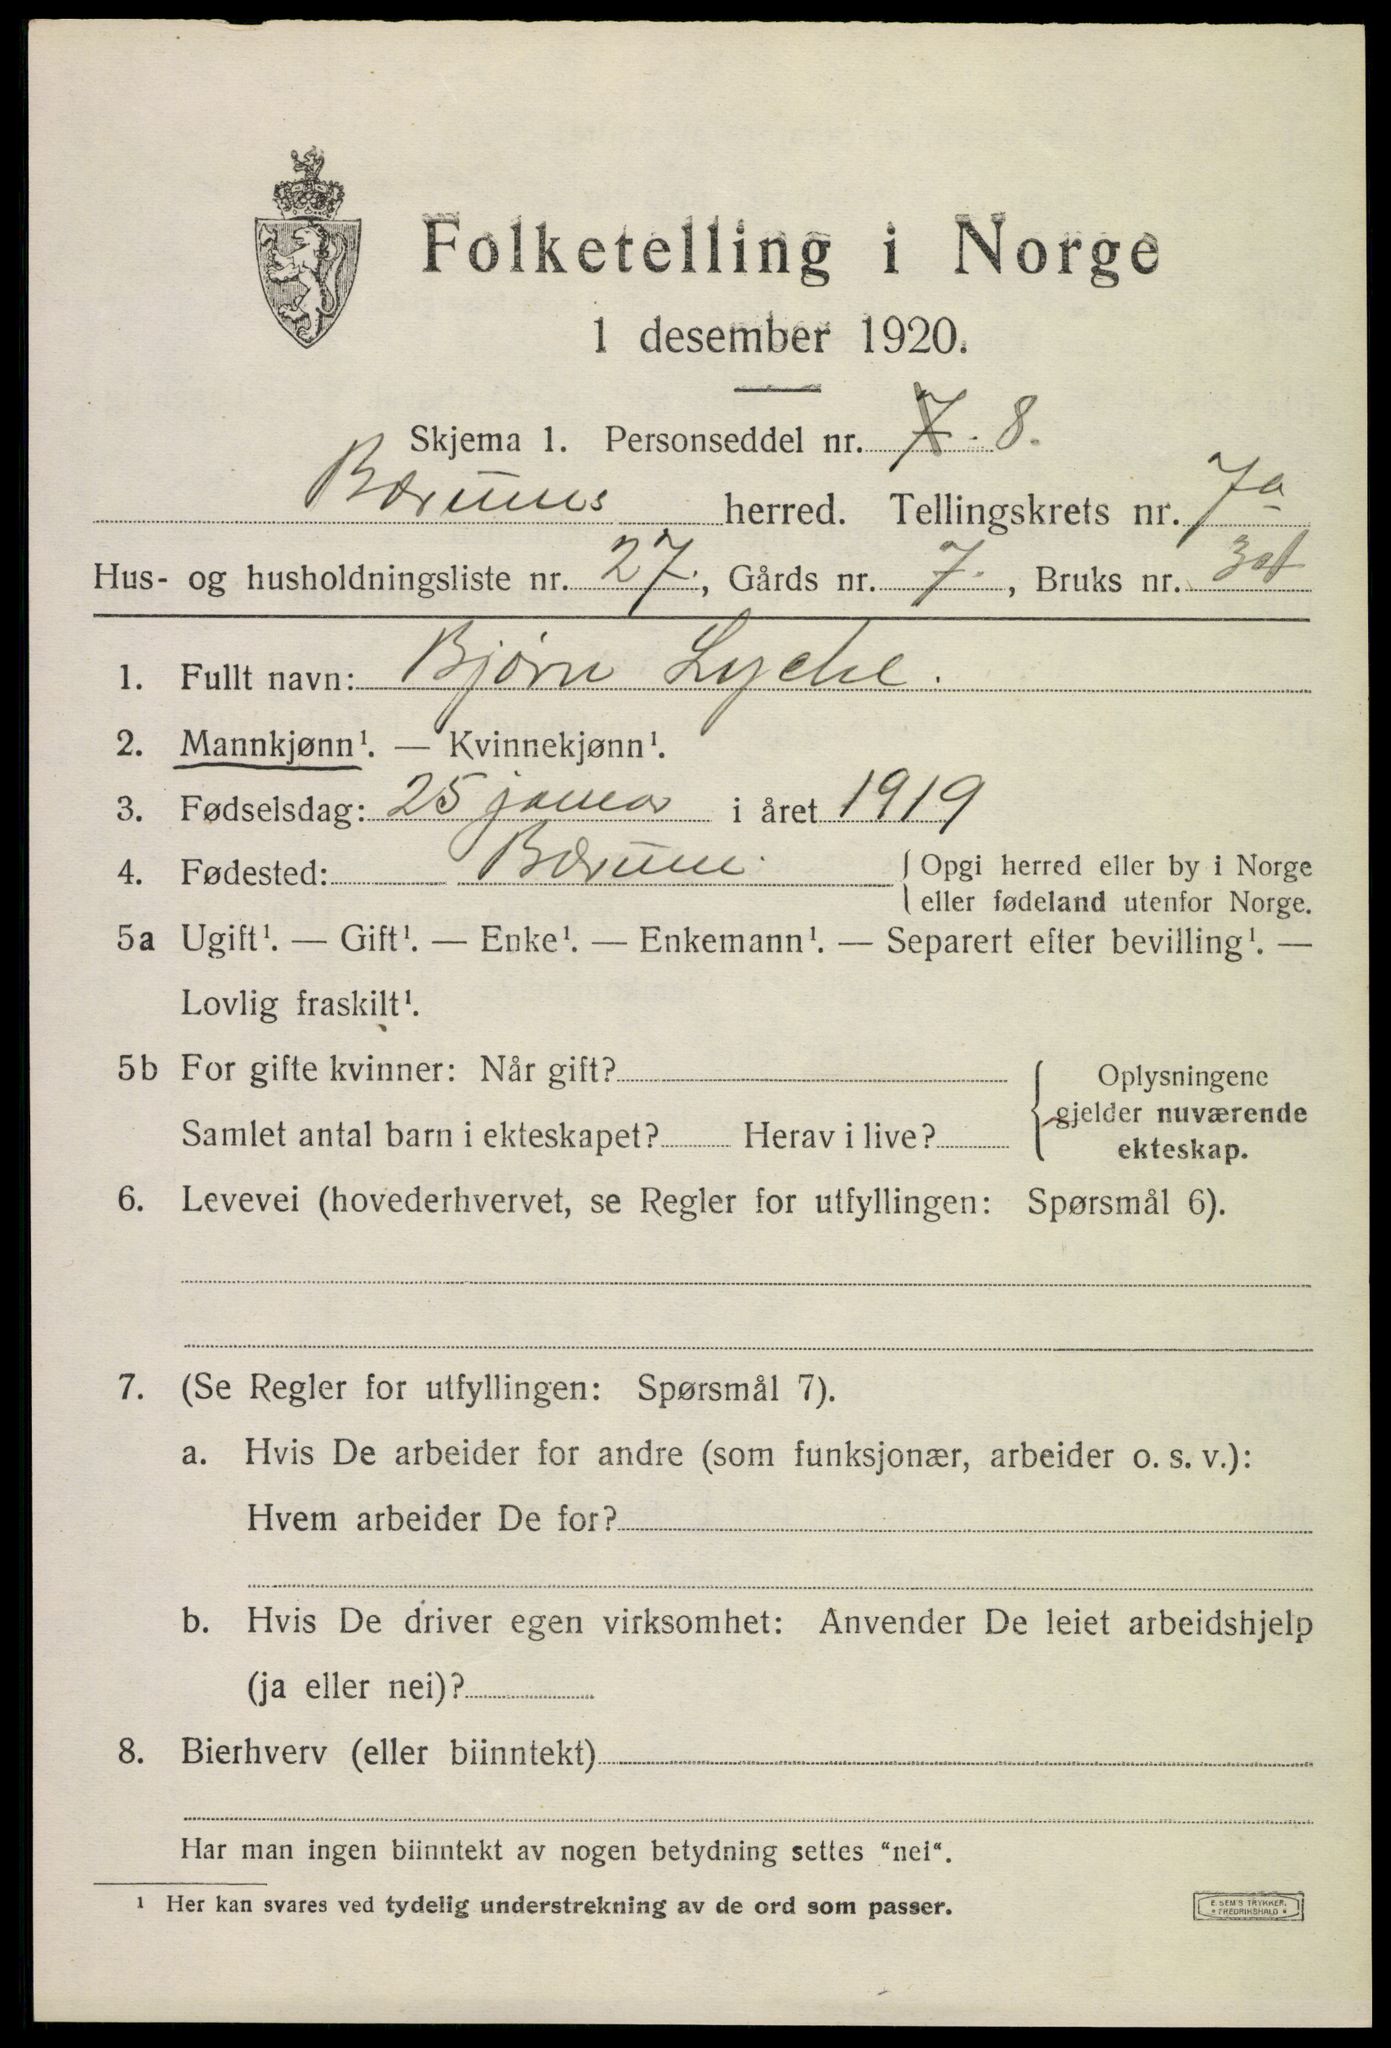 Folketelling i Norge
1 desember 1920.
Skjema 1. Personseddel nr. 7. 8.
Bærums herred. Tellingskrets nr. 7a
Hus- og husholdningsliste nr. 27., Gårds nr. 7., Bruks nr.
1. Fullt navn: Bjørn Lyche.
2. Mannkjønn¹. — Kvinnekjønn¹.
3. Fødselsdag: 25 januar i året 1919
4. Fødested: Bærum. Opgi herred eller by i Norge
eller fødeland utenfor Norge.
5a Ugift¹. — Gift¹. — Enke¹. — Enkemann¹. — Separert efter bevilling¹. —
Lovlig fraskilt¹.
5b For gifte kvinner: Når gift?
Samlet antal barn i ekteskapet? Herav i live?
Oplysningene
gjelder nuværende
ekteskap.
6. Levevei (hovederhvervet, se Regler for utfyllingen: Spørsmål 6).
7. (Se Regler for utfyllingen: Spørsmål 7).
a. Hvis De arbeider for andre (som funksjonær, arbeider o. s. v.):
Hvem arbeider De for?
b. Hvis De driver egen virksomhet: Anvender De leiet arbeidshjelp
(ja eller nei)?
8. Bierhverv (eller biinntekt)
Har man ingen biinntekt av nogen betydning settes "nei".
¹ Her kan svares ved tydelig understrekning av de ord som passer.
E. SEM'S TRYKKER.
* FREDRIKSHALD *